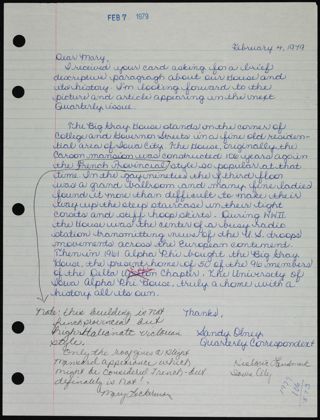 FEB 7 1979
February 4, 1979
Dear Mary,
I received your card asking for a brief
descriptive paragraph about our House and
its history. I'm looking forward to the
picture and article appearing in the next
Quarterly issue.
The Big Gray House stands on the corner of
College and Governor Streets in a fine old residen-
tial area of Iowa City. The House, originally the
Carson mansion was constructed 106 years ago in
the French Provincial style so popular at that
time. In the gay nineties the third floor
was a grand ballroom and many fine ladies
found it more than difficult to make their
way up the steep staircase in their tight
corsets and stiff hoop skirts. During WWII
the House was the center of a busy radio
station transmitting news of the U.S. troops
movements across the European continent.
Then in 1961 Alpha Phi bought the Big Gray
House, the present home of 50 of the 96 members
of the Delta chapter. The University of
Iowa Alpha Phi House, truly a home with a
history all its own.
Thanks,
Sandy Olney
Quarterly Correspondent
Note: this building is not
french provincial but
high Italianate victorian
style.
Only the roof gives a slight
mansard appearance which
might be considered french - but
definately is not!
Mary
Historic Landmark
Iowa City
1979
106
1873